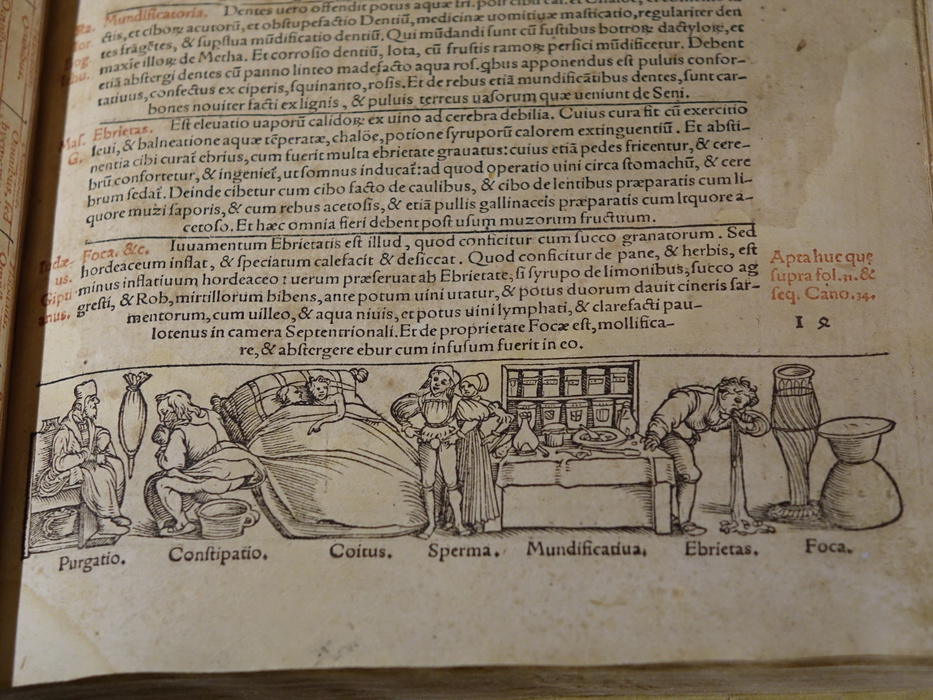 Mundificatoria. Dentes uero offendit potus aquæ
ctis, et ciborꝝ acutorũ, et obstupefactio Dentiũ, medicinæ uomitiuæ masticatio, regulariter den
tes frãgẽtes, & supflua mũdificatio dentiũ. Qui mũdandi sunt cũ fustibus botrorꝝ dactylorꝝ, et
maxie illorꝝ de Metha. Et corrosio dentiũ, lota, cũ frustis ramorꝝ persici mũdificetur. Debent
etiã abstergi dentes cũ panno linteo madefacto aqua ros. qbus apponendus est puluis confor-
tatiuus, confectus ex ciperis, squinanto, rosis. Et de rebus etiã mundificãtibus dentes, sunt car-
bones nouiter facti ex lignis, & puluis terreus uasorum quæ ueniunt de Seni.
Ebrietas. Est eleuatio uaporũ calidorꝝ ex uino ad cerebra debilia. Cuius cura fit cũ exercitio
leui, & balneatione aquæ tẽperatæ, chaloe, potione syruporũ calorem extinguentiũ. Et absti-
nentia cibi curat̃ ebrius, cum fuerit multa ebrietate grauatus: cuius etiã pedes fricentur, & cere-
brũ confortetur, & ingeniet̃, ut somnus inducat̃: ad quod operatio uini circa stomachũ, & cere
brum sedat̃. Deinde cibetur cum cibo facto de caulibus, & cibo de lentibus præparatis cum li-
quore muzi saporis, & cum rebus acetosis, & etiã pullis gallinaceis præparatis cum liquore a-
cetoso. Et hæc omnia fieri debent post usum muzorum fructuum.
Foca. &c. Iuuamentum Ebrietatis est illud, quod conficitur cum succo granatorum. Sed
hordeaceum inflat, & speciatum calefacit & desiccat. Quod conficitur de pane, & herbis, est
minus inflatiuum hordeaceo: uerum præseruat ab Ebrietate, si syrupo de limonibus, succo ag
gresti, & Rob, mirtillorum bibens, ante potum uini utatur, & potus duorum dauit cineris sar-
mentorum, cum uilleo, & aqua niuis, et potus uini lymphati, & clarefacti pau-
lotenus in camera Septentrionali. Et de proprietate Focæ est, mollifica-
re, & abstergere ebur cum infusum fuerit in eo.
Apta huc que
supra fol. 11. &
seq. Cano. 34.
Purgatio. Constipatio. Coitus. Sperma. Mundificatiua. Ebrietas. Foca.